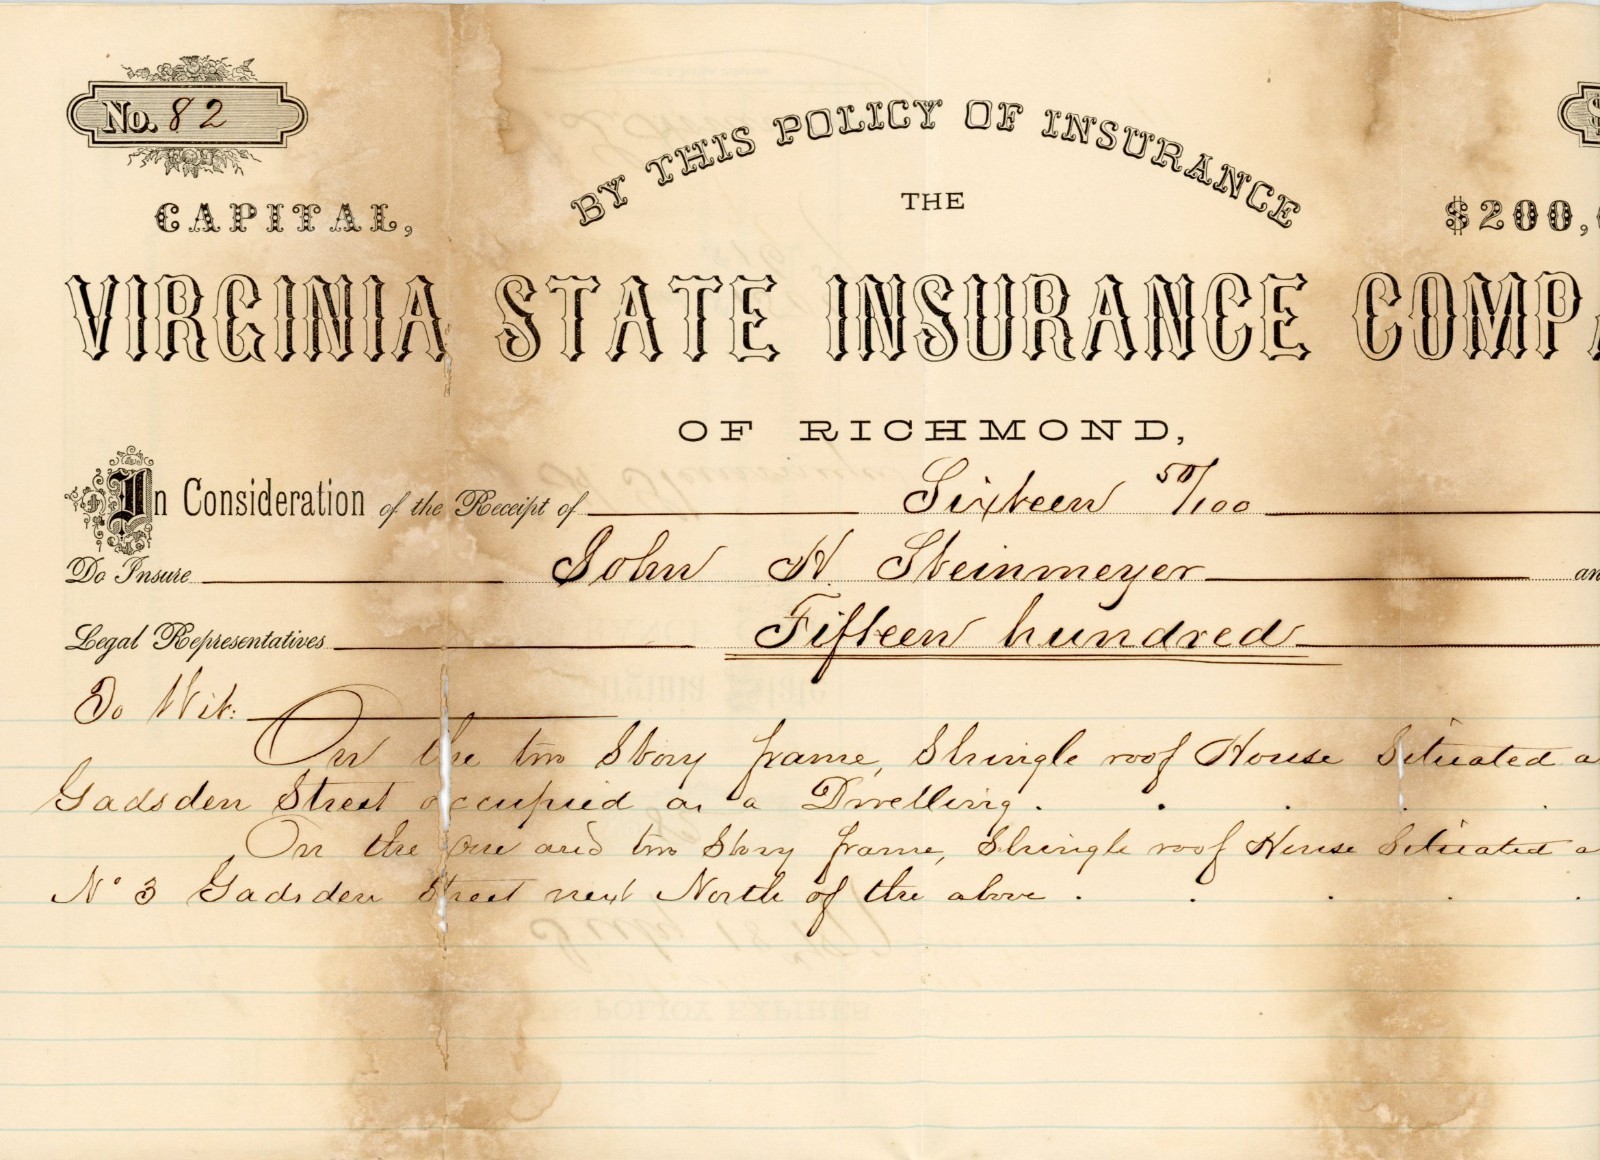 No. 82
BY THIS POLICY OF INSURANCE
THE
CAPITAL, $200,
VIRGINIA STATE INSURANCE COMPA
OF RICHMOND,
In Consideration of the Receipt of Sixteen 50/100
Do Insure John H. Steinmeyer an
Legal Representatives Fifteen hundred
To Wit:
On the two Story frame, Shingle roof House Situated a
Gadsden Street occupied as a Dwelling.
On the one and two Story frame, Shingle roof House Situated a
No 3 Gadsden Street next North of the above.